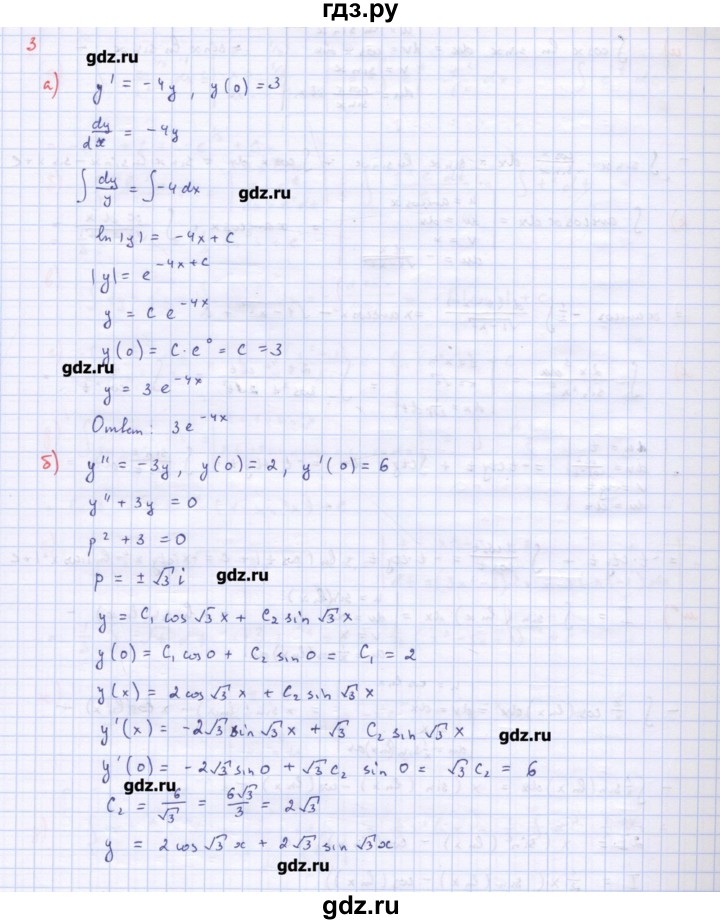 гдз.ру
3
gdz.ru
а) y' = -4y, y(0) = 3
dy/dx = -4y
∫ dy/y = ∫ -4 dx
gdz.ru
ln|y| = -4x + c
|y| = e^{-4x+c}
y = c e^{-4x}
y(0) = c · e^0 = c = 3
gdz.ru
y = 3 e^{-4x}
Ответ: 3e^{-4x}
б) y'' = -3y, y(0) = 2, y'(0) = 6
y'' + 3y = 0
p² + 3 = 0
p = ± √3 i
gdz.ru
y = C₁ cos √3 x + C₂ sin √3 x
y(0) = C₁ cos 0 + C₂ sin 0 = C₁ = 2
y(x) = 2 cos √3 x + C₂ sin √3 x
y'(x) = -2√3 sin √3 x + √3 C₂ sin √3 x
gdz.ru
y'(0) = -2√3 sin 0 + √3 C₂ sin 0 = √3 C₂ = 6
gdz.ru
C₂ = 6/√3 = 6√3/3 = 2√3
y = 2 cos √3 x + 2√3 sin √3 x
gdz.ru
gdz.ru